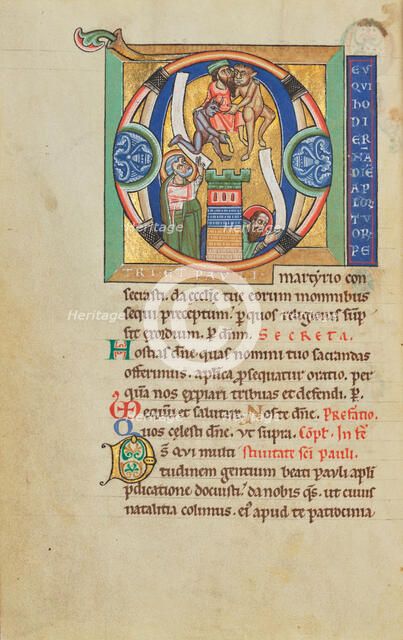 EV
QVI
HODI
ER
NA
DIE AP
LOR
TVOR
PE
TRI ET PAVLI martyrio con
secrasti. da ecclie tue eorum in omnibus
sequi preceptum. p quos religionis sūp
sit exordium. p dnm. SECRETA
Hostias dne quas nomini tuo sacrandas
offerimus. aplica psequatur oratio. per
quam nos expiari tribuas et defendi. p.
equū et salutare. Nos te dne. Prefatio.
Quos celesti dne. ut supra. Cōpl. In fe
Ds qui multi stiuitate sci Pauli.
tudinem gentium beati pauli apli
pdicatione docuisti. da nobis qs. ut cuius
natalitia colimus. ei' apud te patrocinia
Heritage
Heritage
Heritage
Heritage
Images